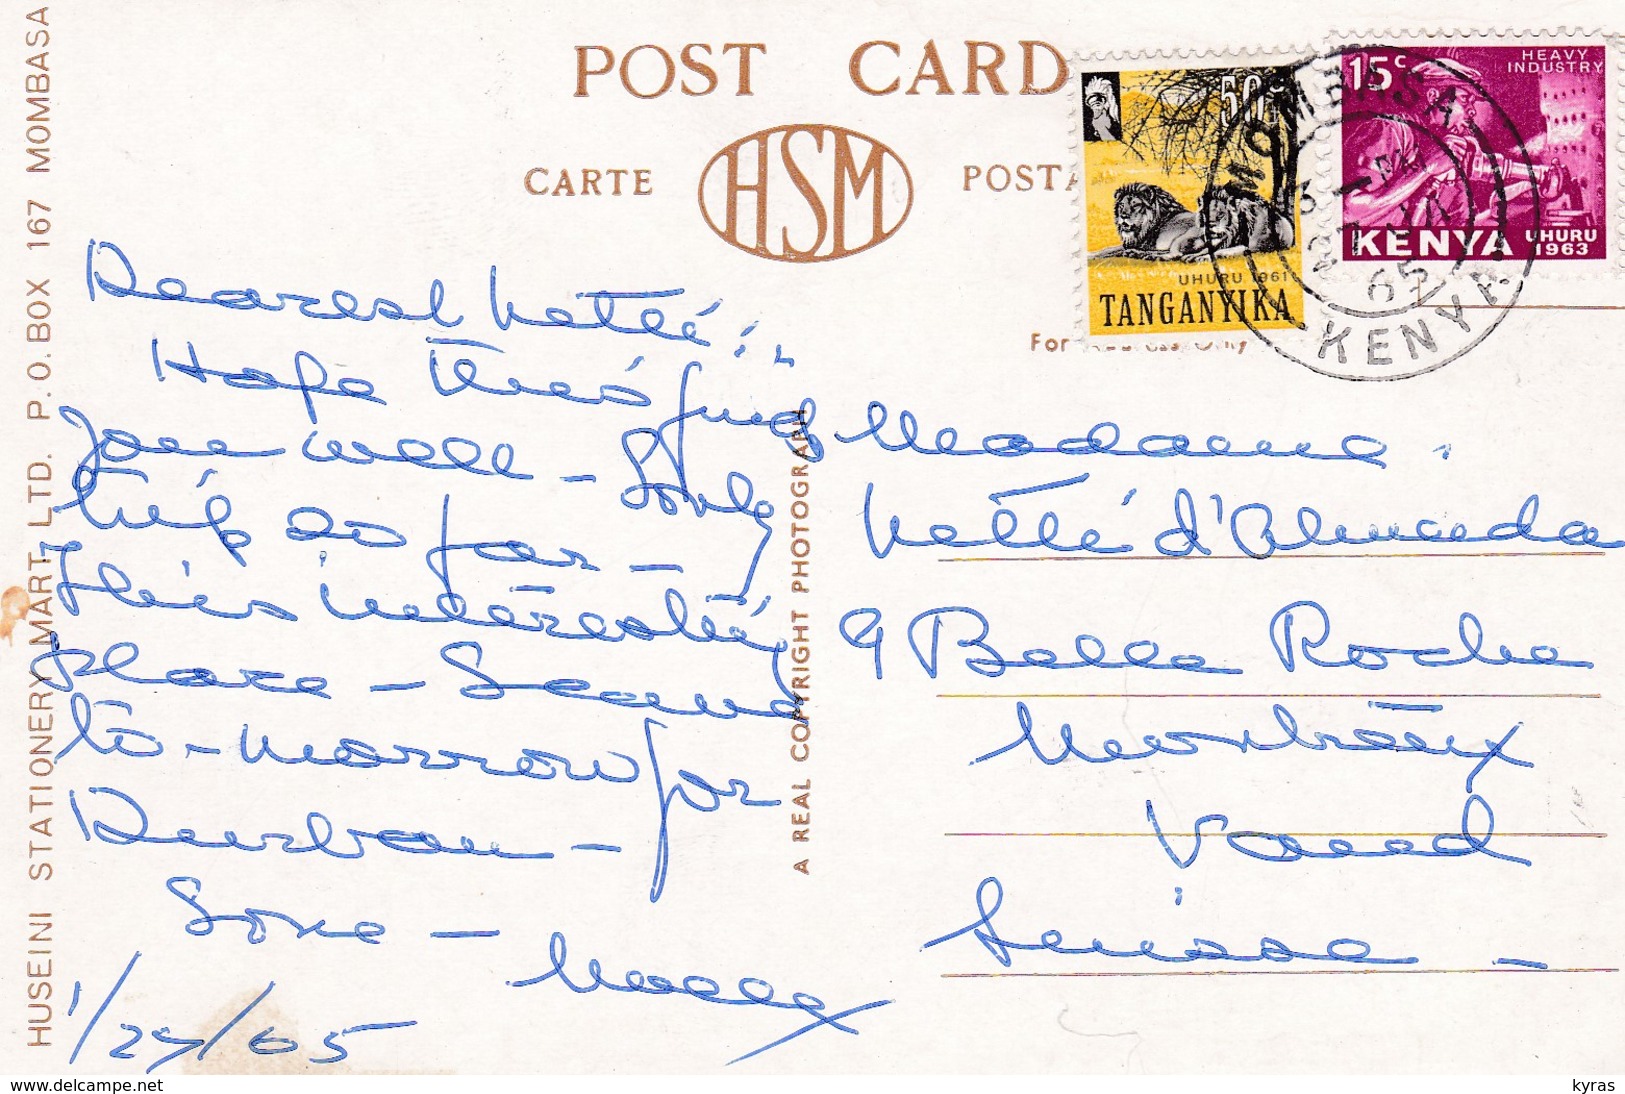 HUSEINI STATIONERY MART LTD. P.O. BOX 167 MOMBASA
POST CARD
CARTE HSM POSTA
For
A REAL COPYRIGHT PHOTOGRAPH
50c
UHURU 1961
TANGANYIKA
15c HEAVY INDUSTRY
KENYA UHURU 1963
MOMBASA
65
KENYA
Dearest Netté:
Hope this finds
you well - Lovely
trip so far -
This interesting
place - Leave
to-morrow for
Durban -
Love -
1/27/65
Madame
Netté d'Almeida
9 Belle Roche
Vaud
Suisse -
www.delcampe.net
kyras